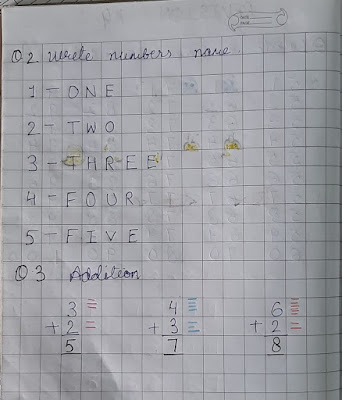 Q2. Write numbers name.
1 - ONE
2 - TWO
3 - THREE
4 - FOUR
5 - FIVE
Q3 Addition
3 4 6
+ 2 + 3 + 2
5 7 8